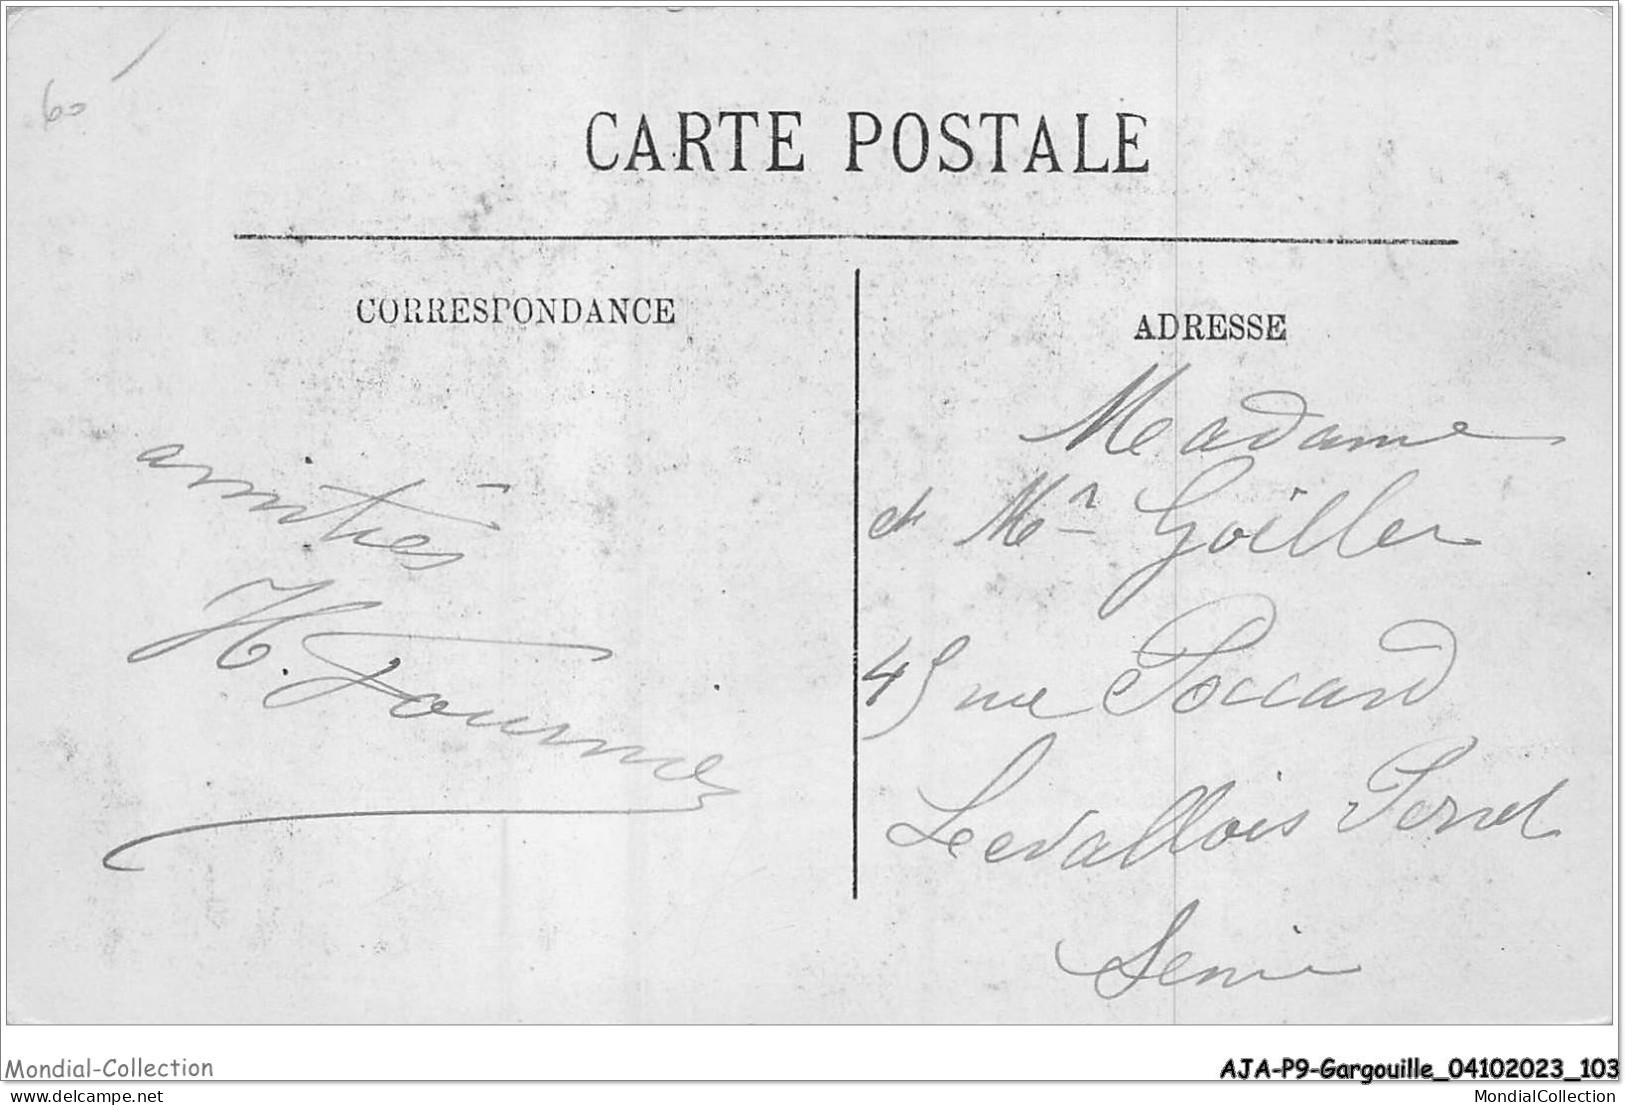 60
CARTE POSTALE
CORRESPONDANCE
amitiés
H. Fournier
ADRESSE
Madame
et Mr Goiller
45 rue Poccard
Levallois Perret
Seine
Mondial-Collection
AJA-P9-Gargouille_04102023_103
www.delcampe.net
MondialCollection